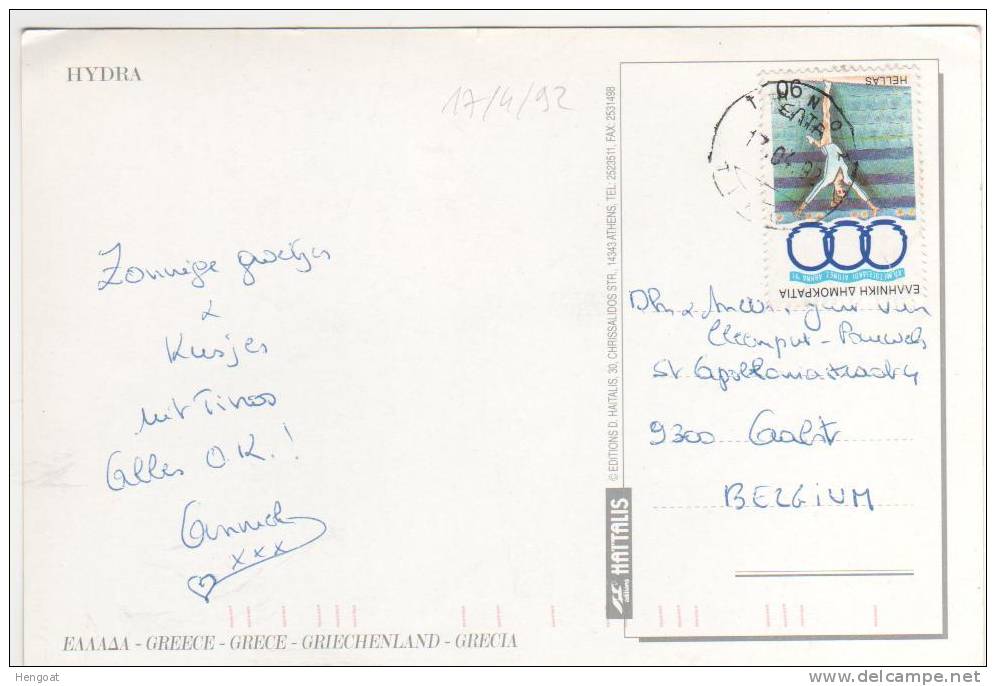 HYDRA
17/4/92
Zonnige groetjes
&
Kusjes
uit Tinos
Alles O.K.!
Annick
xxx
ΕΛΛΑΔΑ - GREECE - GRECE - GRIECHENLAND - GRECIA
© EDITIONS D. HAITALIS, 30, CHRISSALIDOS STR., 14343 ATHENS, TEL: 2523511, FAX: 2531498
editions HAITALIS
HELLAS
ΕΛΛΗΝΙΚΗ ΔΗΜΟΚΡΑΤΙΑ
90
Dhr & Mevr. Van
- Pauwels
St Apolloniastraat 4
9300 Aalst
BELGIUM
Hengoat
delcampe.net